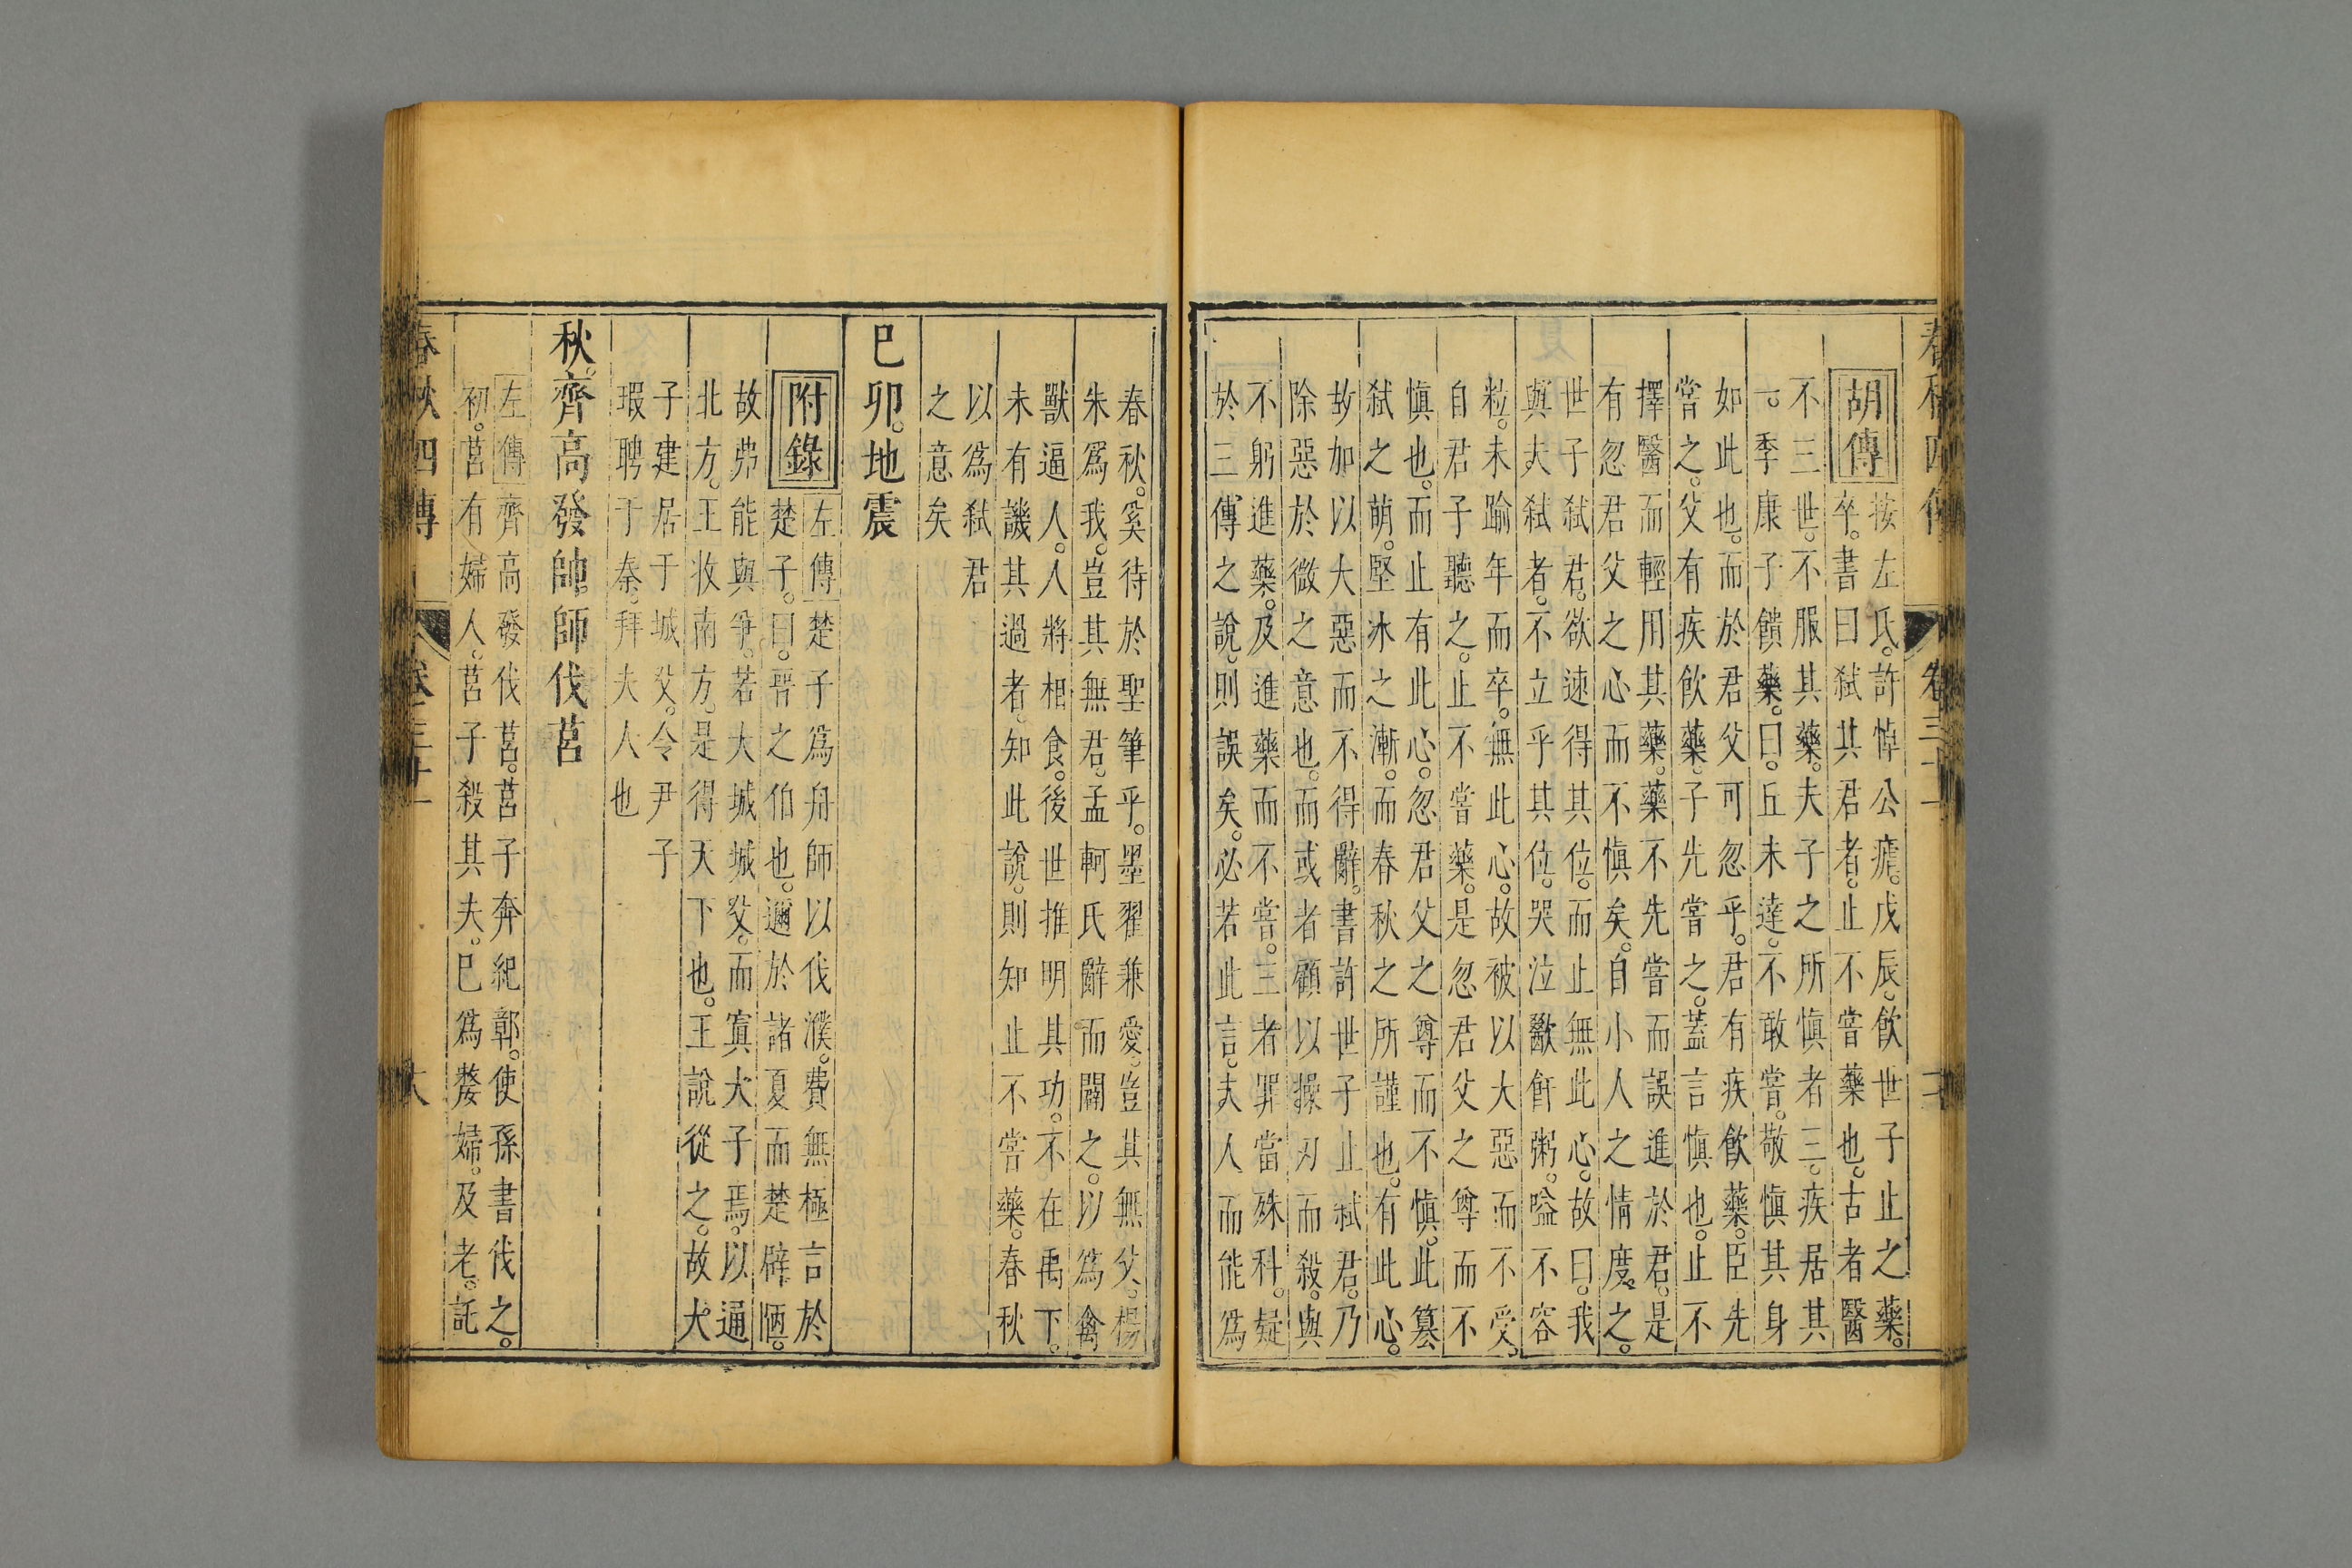 春秋四傳 卷三十一
胡傳
按左氏。許悼公瘧。戊辰。飲世子止之藥。
卒。書曰弑其君者。止不嘗藥也。古者醫
不三世。不服其藥。夫子之所愼者三。疾居其
一。季康子饋藥。曰。丘未達。不敢嘗。敬愼其身
如此也。而於君父可忽乎。君有疾飲藥。臣先
嘗之。父有疾飲藥。子先嘗之。蓋言愼也。止不
擇醫而輕用其藥。藥不先嘗而誤進於君。是
有忽君父之心而不愼矣。自小人之情度之。
世子弑君。欲速得其位。而止無此心。故曰。我
與夫弑者。不立乎其位。哭泣歠飦粥。嗌不容
粒。未踰年而卒。無此心。故被以大惡而不受。
自君子聽之。止不嘗藥。是忽君父之尊而不
愼也。而止有此心。忽君父之尊而不愼。此簒
弑之萌。堅冰之漸。而春秋之所謹也。有此心。
故加以大惡而不得辭。書許世子止弑君。乃
除惡於微之意也。而或者顧以操刃而殺。與
不躬進藥。及進藥而不嘗。三者罪當殊科。疑
於三傳之說。則誤矣。必若此言。夫人而能爲
春秋。奚待於聖筆乎。墨翟兼愛。豈其無父。楊
朱爲我。豈其無君。孟軻氏辭而闢之。以爲禽
獸逼人。人將相食。後世推明其功。不在禹下。
未有譏其過者。知此說。則知止不嘗藥。春秋
以爲弑君
之意矣
巳卯。地震
附錄
左傳楚子爲舟師以伐濮。費無極言於
楚子。曰。晉之伯也。邇於諸夏而楚辟陋。
故弗能與爭。若大城城父。而寘大子焉。以通
北方。王收南方。是得天下也。王說從之。故大
子建居于城父。令尹子
瑕聘于秦。拜夫人也
秋。齊高發帥師伐莒
左傳齊高發伐莒。莒子奔紀鄣。使孫書伐之。
初。莒有婦人。莒子殺其夫。巳爲嫠婦。及老。託
春秋四傳 卷三十一 六